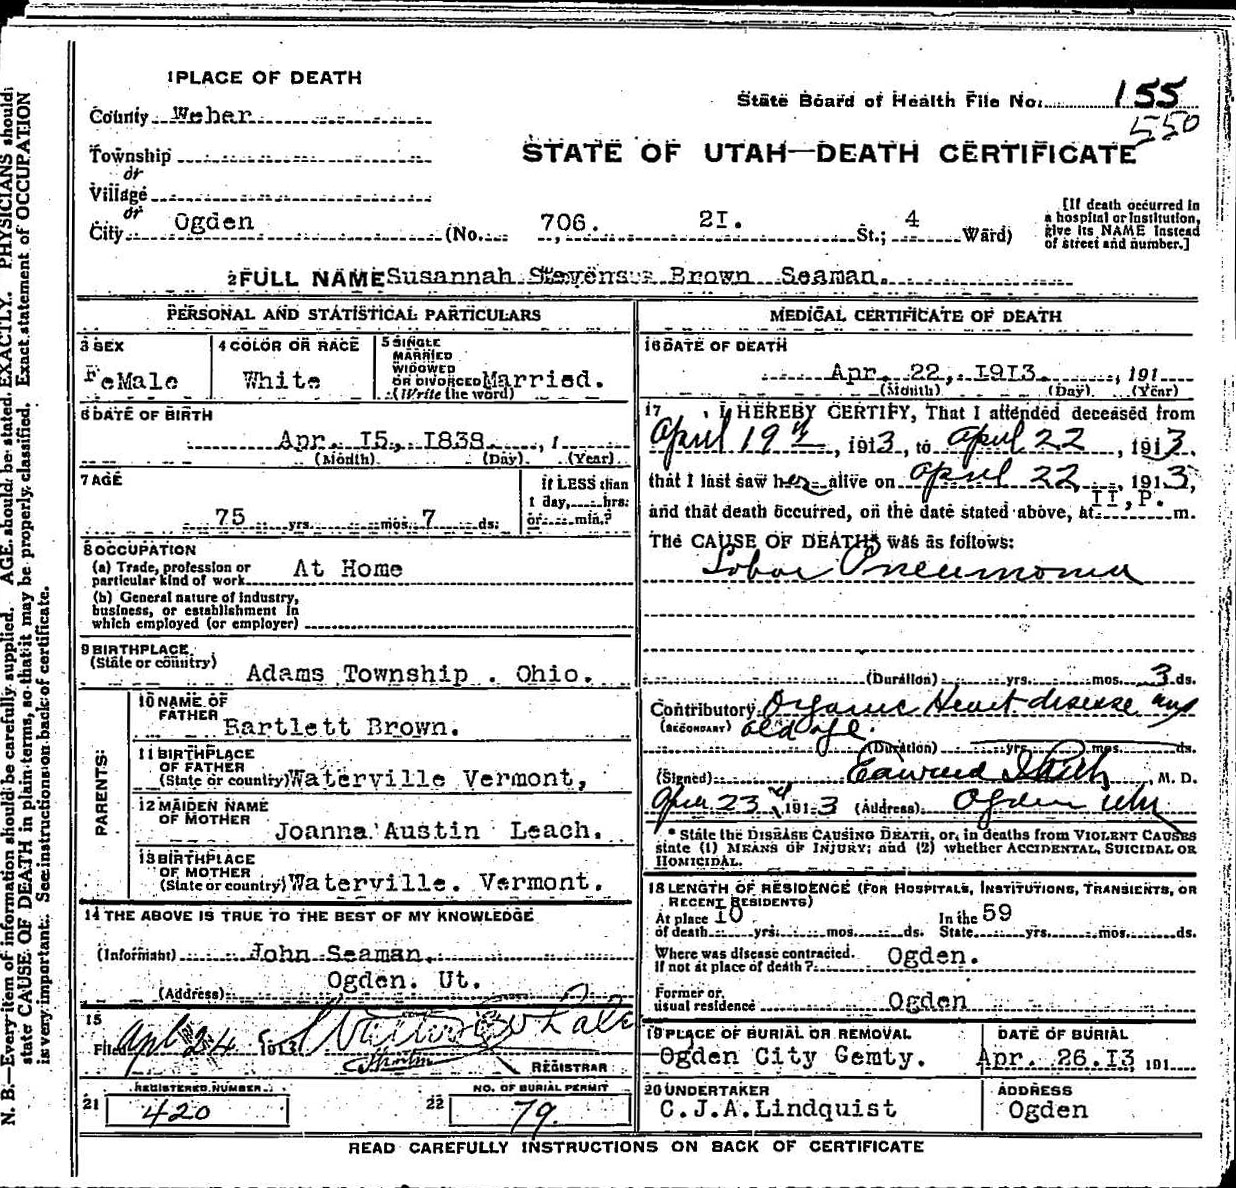 1 PLACE OF DEATH
County Weber
State Board of Health File No. 155
550
Township
or
Village
or
City Ogden (No. 706. 21. St.; 4 Ward)
STATE OF UTAH—DEATH CERTIFICATE
[If death occurred in
a hospital or institution,
give its NAME instead
of street and number.]
2 FULL NAME Susannah Stevens Brown Seaman.
PERSONAL AND STATISTICAL PARTICULARS
3 SEX
FeMale
4 COLOR OR RACE
White
5 SINGLE
MARRIED
WIDOWED
OR DIVORCED Married.
(Write the word)
6 DATE OF BIRTH
Apr. 15, 1838 , 1
(Month) (Day) (Year)
7 AGE
75 yrs. mos. 7 ds.
if LESS than
1 day, hrs.
or min.?
8 OCCUPATION
(a) Trade, profession or
particular kind of work At Home
(b) General nature of industry,
business, or establishment in
which employed (or employer)
9 BIRTHPLACE
(State or country) Adams Township . Ohio.
PARENTS
10 NAME OF
FATHER Bartlett Brown.
11 BIRTHPLACE
OF FATHER
(State or country) Waterville Vermont,
12 MAIDEN NAME
OF MOTHER
Joanna Austin Leach.
13 BIRTHPLACE
OF MOTHER
(State or country) Waterville. Vermont.
14 THE ABOVE IS TRUE TO THE BEST OF MY KNOWLEDGE
(Informant) John Seaman.
(Address) Ogden. Ut.
15
Filed Apl 24 1913
REGISTRAR
REGISTERED NUMBER
21 420
NO. OF BURIAL PERMIT
22 79.
MEDICAL CERTIFICATE OF DEATH
16 DATE OF DEATH
Apr. 22, 1913. , 191
(Month) (Day) (Year)
17 I HEREBY CERTIFY, That I attended deceased from
April 19th , 1913, to April 22 , 1913.
that I last saw her alive on April 22 , 1913,
and that death occurred, on the date stated above, at 11, P. m.
The CAUSE OF DEATH was as follows:
Lobar Pneumonia
(Duration) yrs. mos. 3 ds.
Contributory Organic Heart disease and
(SECONDARY) old age.
(Duration) yrs. mos. ds.
(Signed) , M. D.
April 23rd 1913 (Address) Ogden Utah
* State the DISEASE CAUSING DEATH, or, in deaths from VIOLENT CAUSES
state (1) MEANS OF INJURY; and (2) whether ACCIDENTAL, SUICIDAL OR
HOMICIDAL.
18 LENGTH OF RESIDENCE (FOR HOSPITALS, INSTITUTIONS, TRANSIENTS, OR
RECENT RESIDENTS)
At place 10 In the 59
of death yrs. mos. ds. State yrs. mos. ds.
Where was disease contracted.
If not at place of death? Ogden.
Former or
usual residence Ogden
19 PLACE OF BURIAL OR REMOVAL
Ogden City Cemty.
DATE OF BURIAL
Apr. 26.13 191
20 UNDERTAKER
C.J.A.Lindquist
ADDRESS
Ogden
READ CAREFULLY INSTRUCTIONS ON BACK OF CERTIFICATE
N. B.—Every item of information should be carefully supplied. AGE should be stated EXACTLY. PHYSICIANS should
state CAUSE OF DEATH in plain terms, so that it may be properly classified. Exact statement of OCCUPATION
is very important. See instructions on back of certificate.